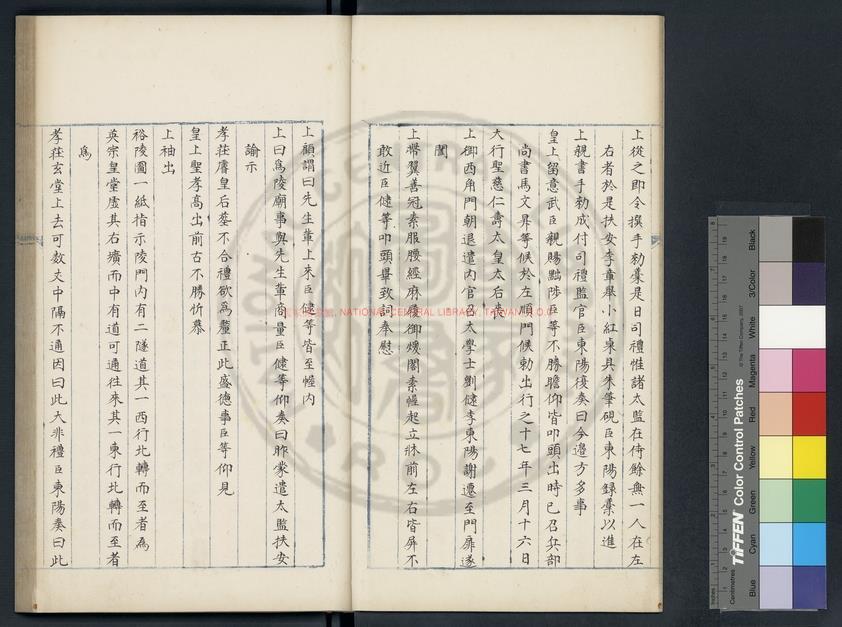 上從之即令撰手勑藁是日司禮惟諸太監在侍餘無一人在左
右者於是扶安李璋舉小紅桌具朱筆硯臣東陽録藁以進
上親書手勑成付司禮監官臣東陽復奏曰今邉方多事
皇上留意武臣親賜黜陟臣等不勝瞻仰皆叩頭出時已召兵部
尚書馬文昇等候於左順門候勑出行之十七年三月十六日
大行聖慈仁壽太皇太后喪
上御西角門朝退遣内官召大學士劉健李東陽謝遷至門扉遂
闔
上帶翼善冠素服腰絰麻履御煖閣素幄起立牀前左右皆屏不
敢近臣健等叩頭畢致詞奉慰
上顧謂曰先生軰上來臣健等皆至幄内
上曰為陵廟事與先生軰商量臣健等仰奏曰昨蒙遣太監扶安
諭示
孝莊睿皇后塟不合禮欲為釐正此盛德事臣等仰見
皇上聖孝高出前古不勝忻慕
上袖出
裕陵圖一紙指示陵門内有二隧道其一西行北轉而至者為
英宗皇堂虛其右壙而中有道可通往來其一東行北轉而至者
為
孝莊玄堂上去可数丈中隔不通因曰此大非禮臣東陽奏曰此
NATIONAL CENTRAL LIBRARY, TAIWAN, R.O.C
TIFFEN Color Control Patches
© The Tiffen Company, 2007
Blue
Cyan
Green
Yellow
Red
Magenta
White
3/Color
Black
Inches
Centimetres